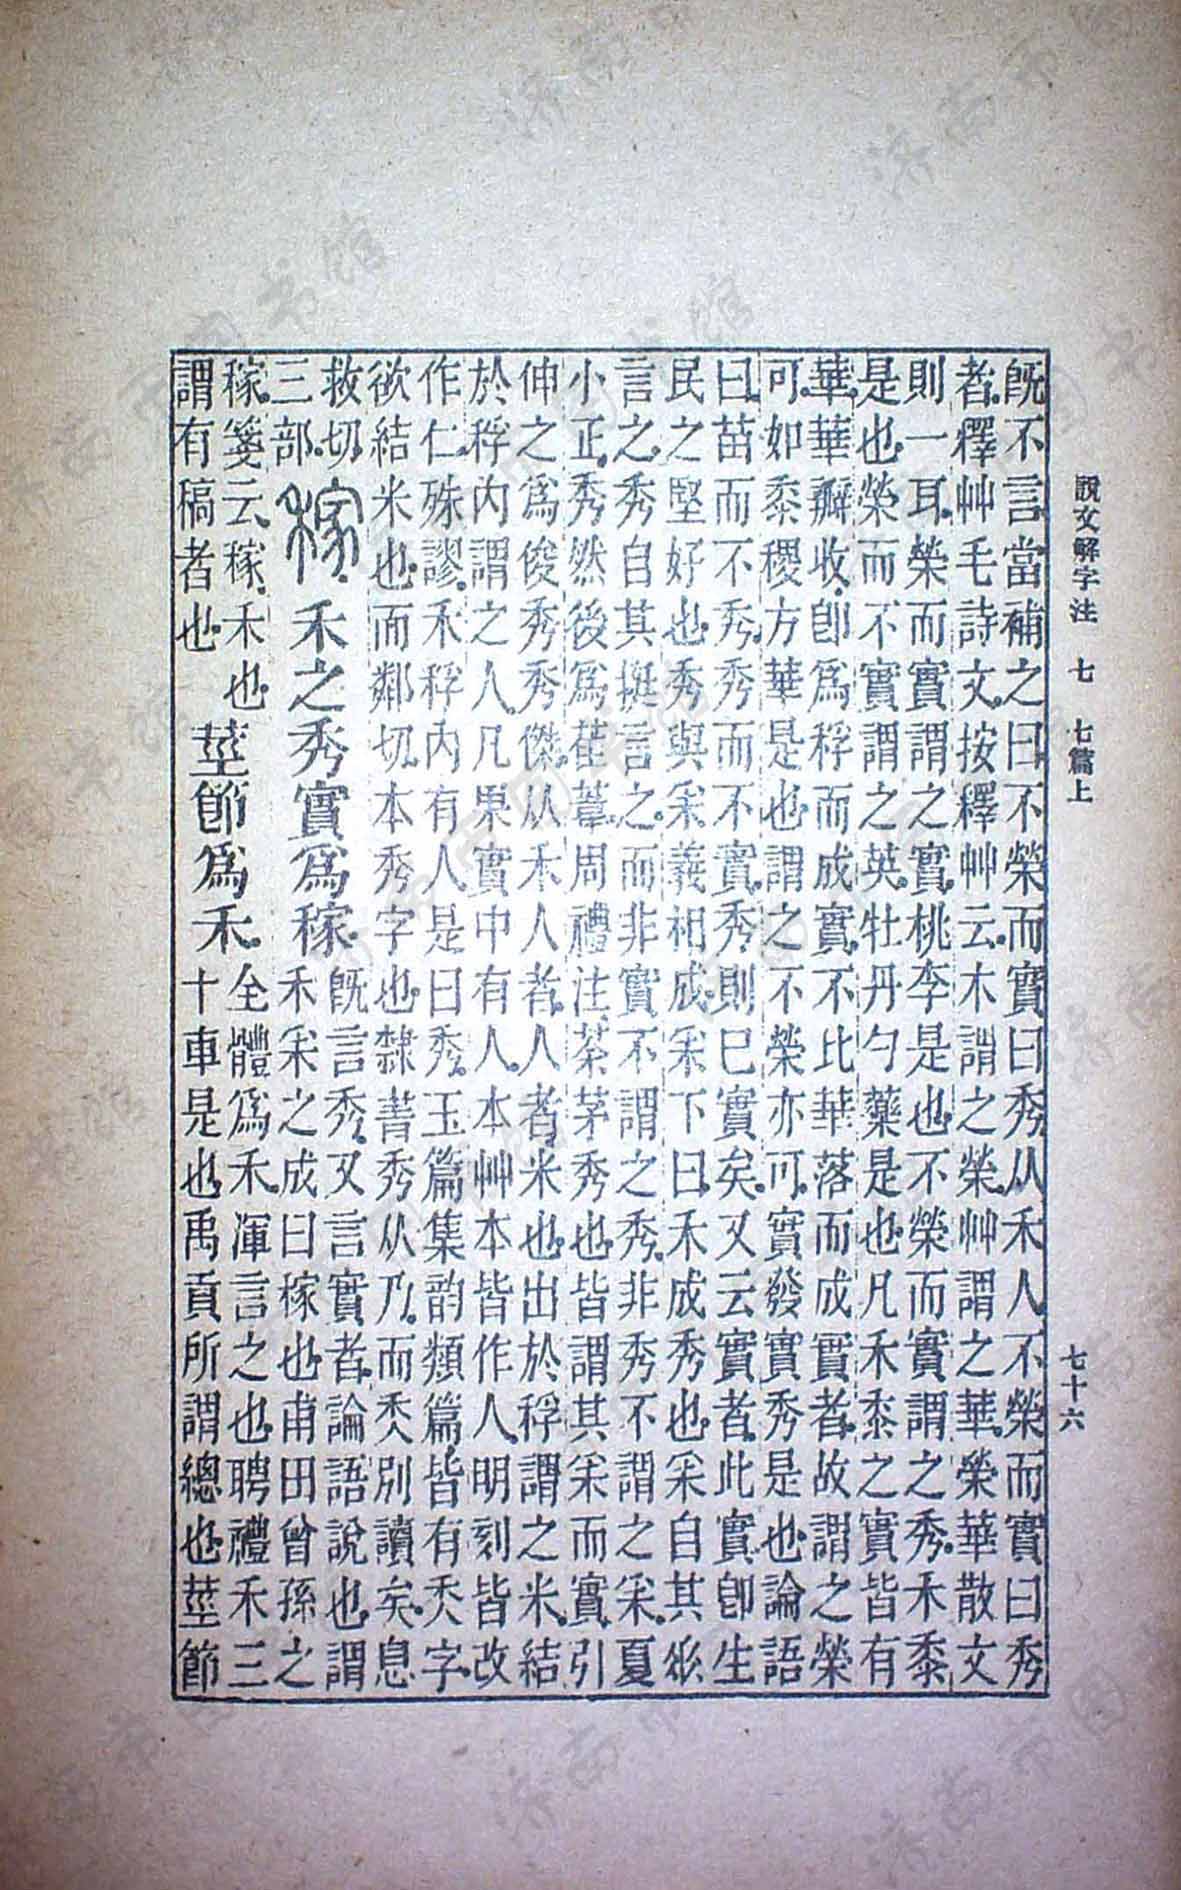 說文解字注 七 七篇上 七十六
既不言當補之曰不榮而實曰秀从禾人不榮而實曰秀
者釋艸毛詩文按釋艸云木謂之榮艸謂之華榮華散文
則一耳榮而實謂之實桃李是也不榮而實謂之秀禾黍
是也榮而不實謂之英牡丹勺藥是也凡禾黍之實皆有
華華瓣收卽爲稃而成實不比華落而成實者故謂之榮
可如黍稷方華是也謂之不榮亦可實發實秀是也論語
曰苗而不秀秀而不實秀則已實矣又云實者此實卽生
民之堅好也秀與采義相成采下曰禾成秀也采自其㐺
言之秀自其挺言之而非實不謂之秀非秀不謂之采夏
小正秀然後爲萑葦周禮注荼茅秀也皆謂其采而實引
伸之爲俊秀秀傑从禾人者人者米也出於稃謂之米結
於稃內謂之人凡果實中有人本艸本皆作人明刻皆改
作仁殊謬禾稃內有人是曰秀玉篇集韵類篇皆有秂字
欲結米也而鄰切本秀字也隸書秀从乃而秂別讀矣息
救切
三部
稼 禾之秀實爲稼
既言秀又言實者論語說也謂
禾采之成曰稼也甫田曾孫之
稼箋云稼禾也
謂有稿者也
莖節爲禾
全體爲禾渾言之也聘禮禾三
十車是也禹貢所謂總也莖節